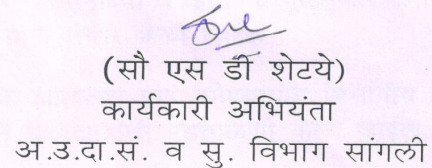 (सौ एस डी शेटये)
कार्यकारी अभियंता
अ.उ.दा.सं. व सु. विभाग सांगली